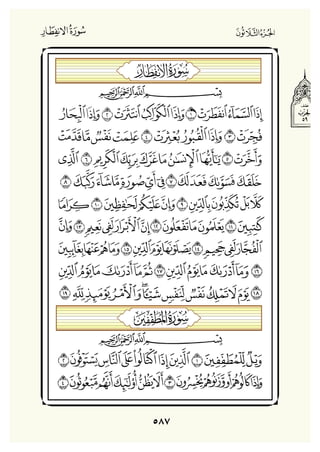 سُورَةُ الانفِطَارِ
الجُزْءُ الثَّلَاثُونَ
سُورَةُ الانفِطَارِ
بِسْمِ ٱللَّهِ ٱلرَّحْمَٰنِ ٱلرَّحِيمِ
إِذَا ٱلسَّمَآءُ ٱنفَطَرَتْ ١ وَإِذَا ٱلْكَوَاكِبُ ٱنتَثَرَتْ ٢ وَإِذَا ٱلْبِحَارُ
فُجِّرَتْ ٣ وَإِذَا ٱلْقُبُورُ بُعْثِرَتْ ٤ عَلِمَتْ نَفْسٌ مَّا قَدَّمَتْ
وَأَخَّرَتْ ٥ يَٰٓأَيُّهَا ٱلْإِنسَٰنُ مَا غَرَّكَ بِرَبِّكَ ٱلْكَرِيمِ ٦ ٱلَّذِى
خَلَقَكَ فَسَوَّىٰكَ فَعَدَلَكَ ٧ فِىٓ أَىِّ صُورَةٍ مَّا شَآءَ رَكَّبَكَ ٨
كَلَّا بَلْ تُكَذِّبُونَ بِٱلدِّينِ ٩ وَإِنَّ عَلَيْكُمْ لَحَٰفِظِينَ ١٠ كِرَامًا
كَٰتِبِينَ ١١ يَعْلَمُونَ مَا تَفْعَلُونَ ١٢ إِنَّ ٱلْأَبْرَارَ لَفِى نَعِيمٍ ١٣ وَإِنَّ
ٱلْفُجَّارَ لَفِى جَحِيمٍ ١٤ يَصْلَوْنَهَا يَوْمَ ٱلدِّينِ ١٥ وَمَا هُمْ عَنْهَا بِغَآئِبِينَ
١٦ وَمَآ أَدْرَىٰكَ مَا يَوْمُ ٱلدِّينِ ١٧ ثُمَّ مَآ أَدْرَىٰكَ مَا يَوْمُ ٱلدِّينِ
١٨ يَوْمَ لَا تَمْلِكُ نَفْسٌ لِّنَفْسٍ شَيْـًٔا ۖ وَٱلْأَمْرُ يَوْمَئِذٍ لِّلَّهِ ١٩
سُورَةُ المُطَفِّفِينَ
بِسْمِ ٱللَّهِ ٱلرَّحْمَٰنِ ٱلرَّحِيمِ
وَيْلٌ لِّلْمُطَفِّفِينَ ١ ٱلَّذِينَ إِذَا ٱكْتَالُوا۟ عَلَى ٱلنَّاسِ يَسْتَوْفُونَ ٢
وَإِذَا كَالُوهُمْ أَو وَّزَنُوهُمْ يُخْسِرُونَ ٣ أَلَا يَظُنُّ أُو۟لَٰٓئِكَ أَنَّهُم مَّبْعُوثُونَ ٤
٥٨٧